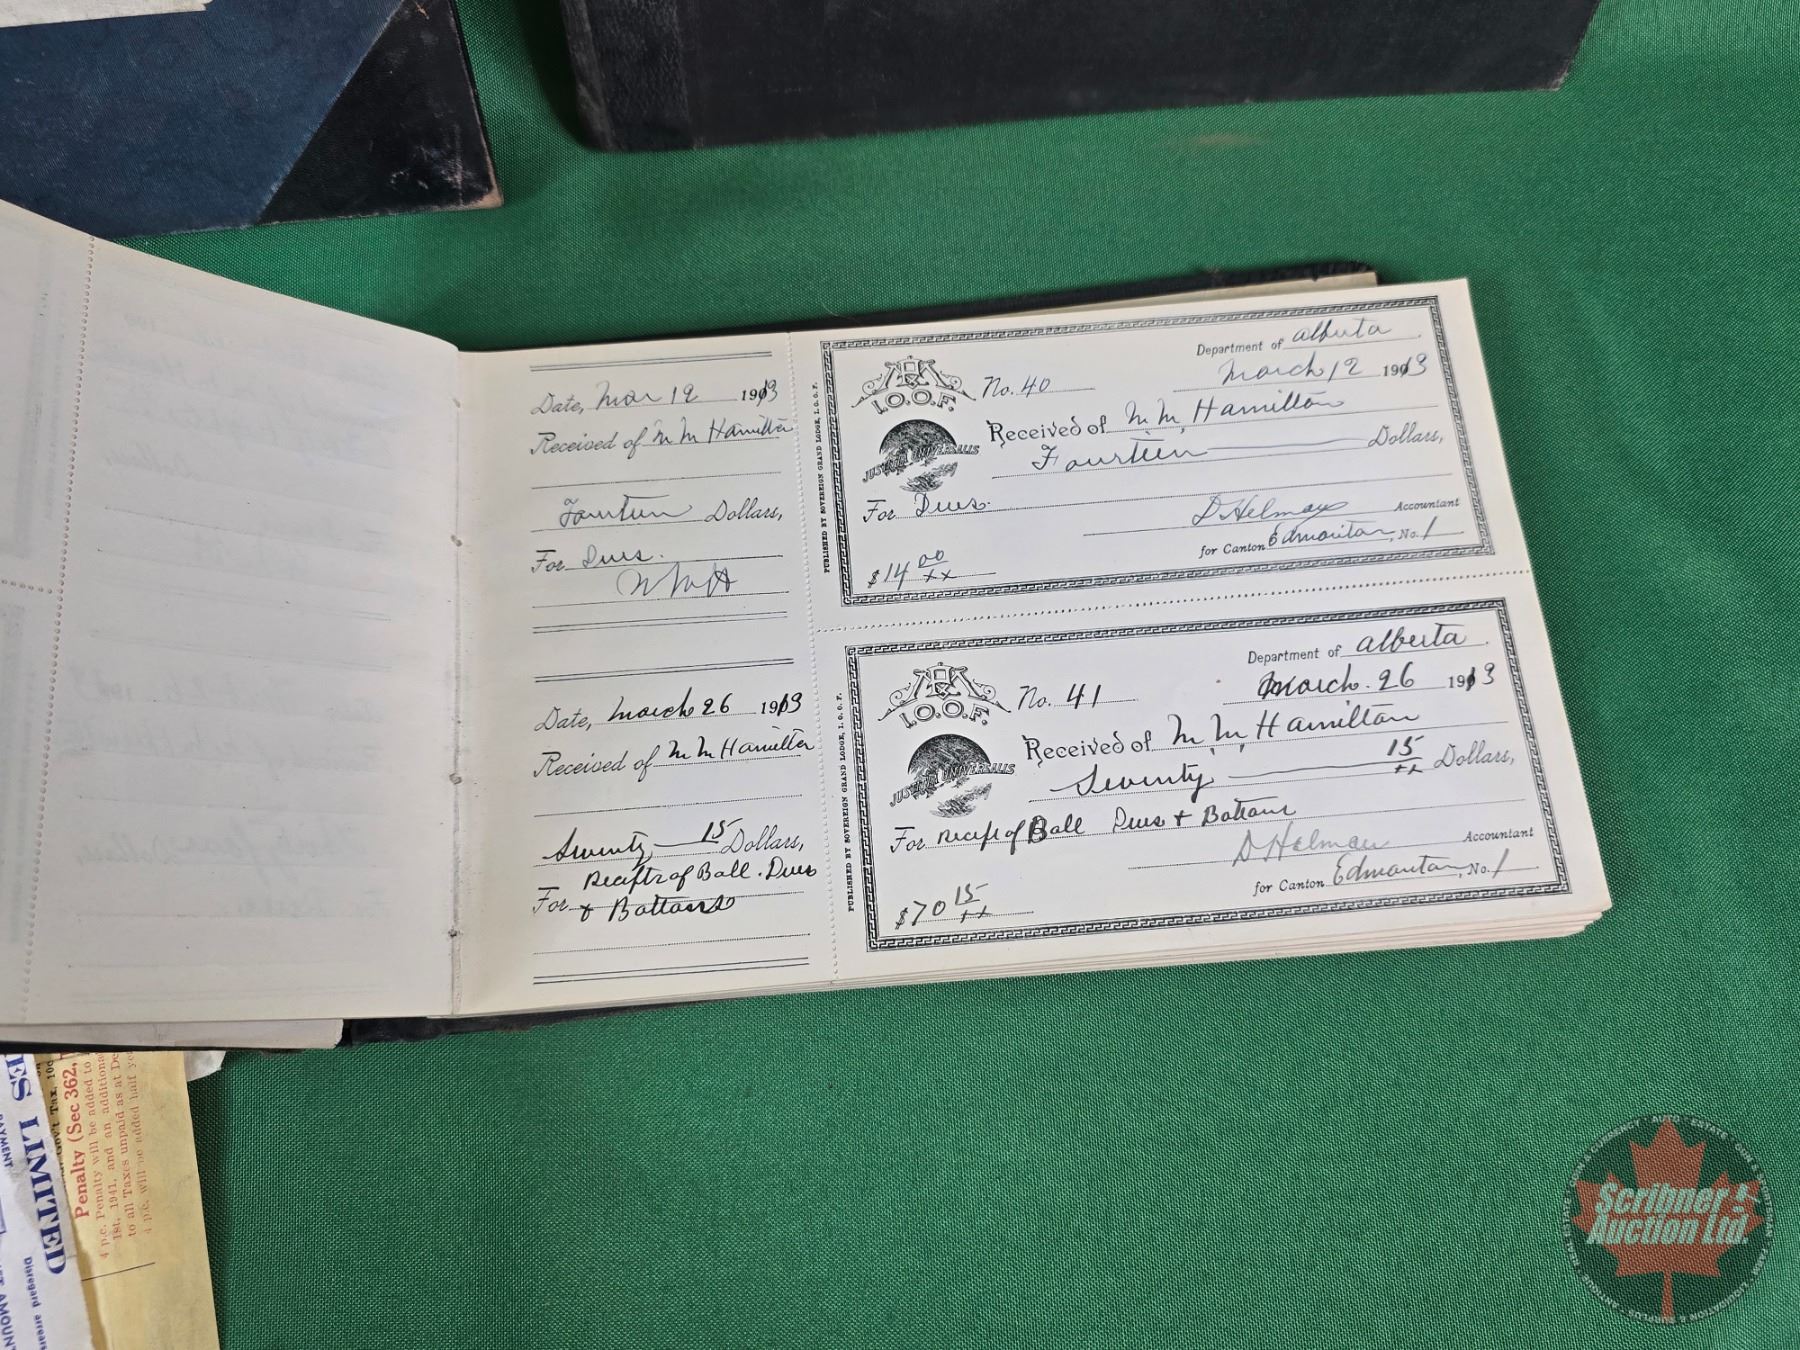 Date, Mar 12 1913
Received of M M Hamilton
Fourteen Dollars,
For Dues.
Date, March 26 1913
Received of M M Hamilton
Seventy 15 Dollars,
Receipts of Ball. Dues
For & Buttons
PUBLISHED BY SOVEREIGN GRAND LODGE, I.O.O.F.
Department of Alberta
I.O.O.F. No. 40 March 12 1913
Received of M. M. Hamilton
JUSTITIA UNIVERSALIS
Fourteen Dollars,
For Dues.
Accountant
for Canton Edmonton, No. 1
$14 00/xx
PUBLISHED BY SOVEREIGN GRAND LODGE, I.O.O.F.
Department of Alberta
I.O.O.F. No. 41 March. 26 1913
Received of M. M. Hamilton
JUSTITIA UNIVERSALIS
Seventy 15/xx Dollars,
For Receipt of Ball Dues & Buttons
Accountant
for Canton Edmonton, No. 1
$70 15/xx
LIMITED
PAYMENT
Disregard
Penalty (Sec 362,
4 p.c. Penalty will be added to
1st, 1941, and an additional
to all Taxes unpaid as at De
4 p.c. will be added half
Scribner
Auction Ltd.